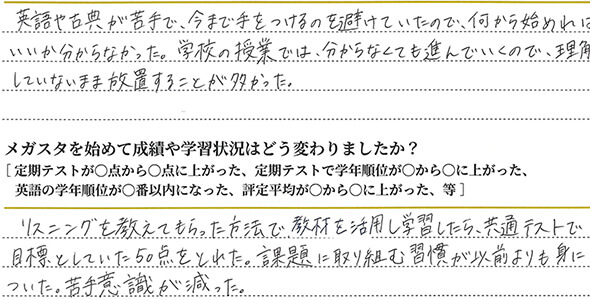 英語や古典が苦手で、今まで手をつけるのを避けていたので、何から始めれば
いいか分からなかった。学校の授業では、分からなくても進んでいくので、理解
していないまま放置することが多かった。
メガスタを始めて成績や学習状況はどう変わりましたか？
[ 定期テストが〇点から〇点に上がった、定期テストで学年順位が〇から〇に上がった、
英語の学年順位が〇番以内になった、評定平均が〇から〇に上がった、等 ]
リスニングを教えてもらった方法で教材を活用し学習したら、共通テストで
目標としていた50点をとれた。課題に取り組む習慣が以前よりも身に
ついた。苦手意識が減った。